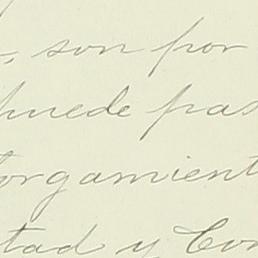 , son por
puede pas
orgamient
tad y Con